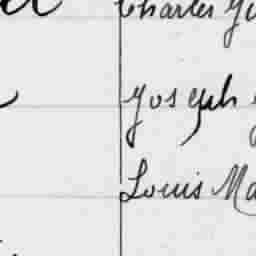 Charles
Joseph
Louis Ma